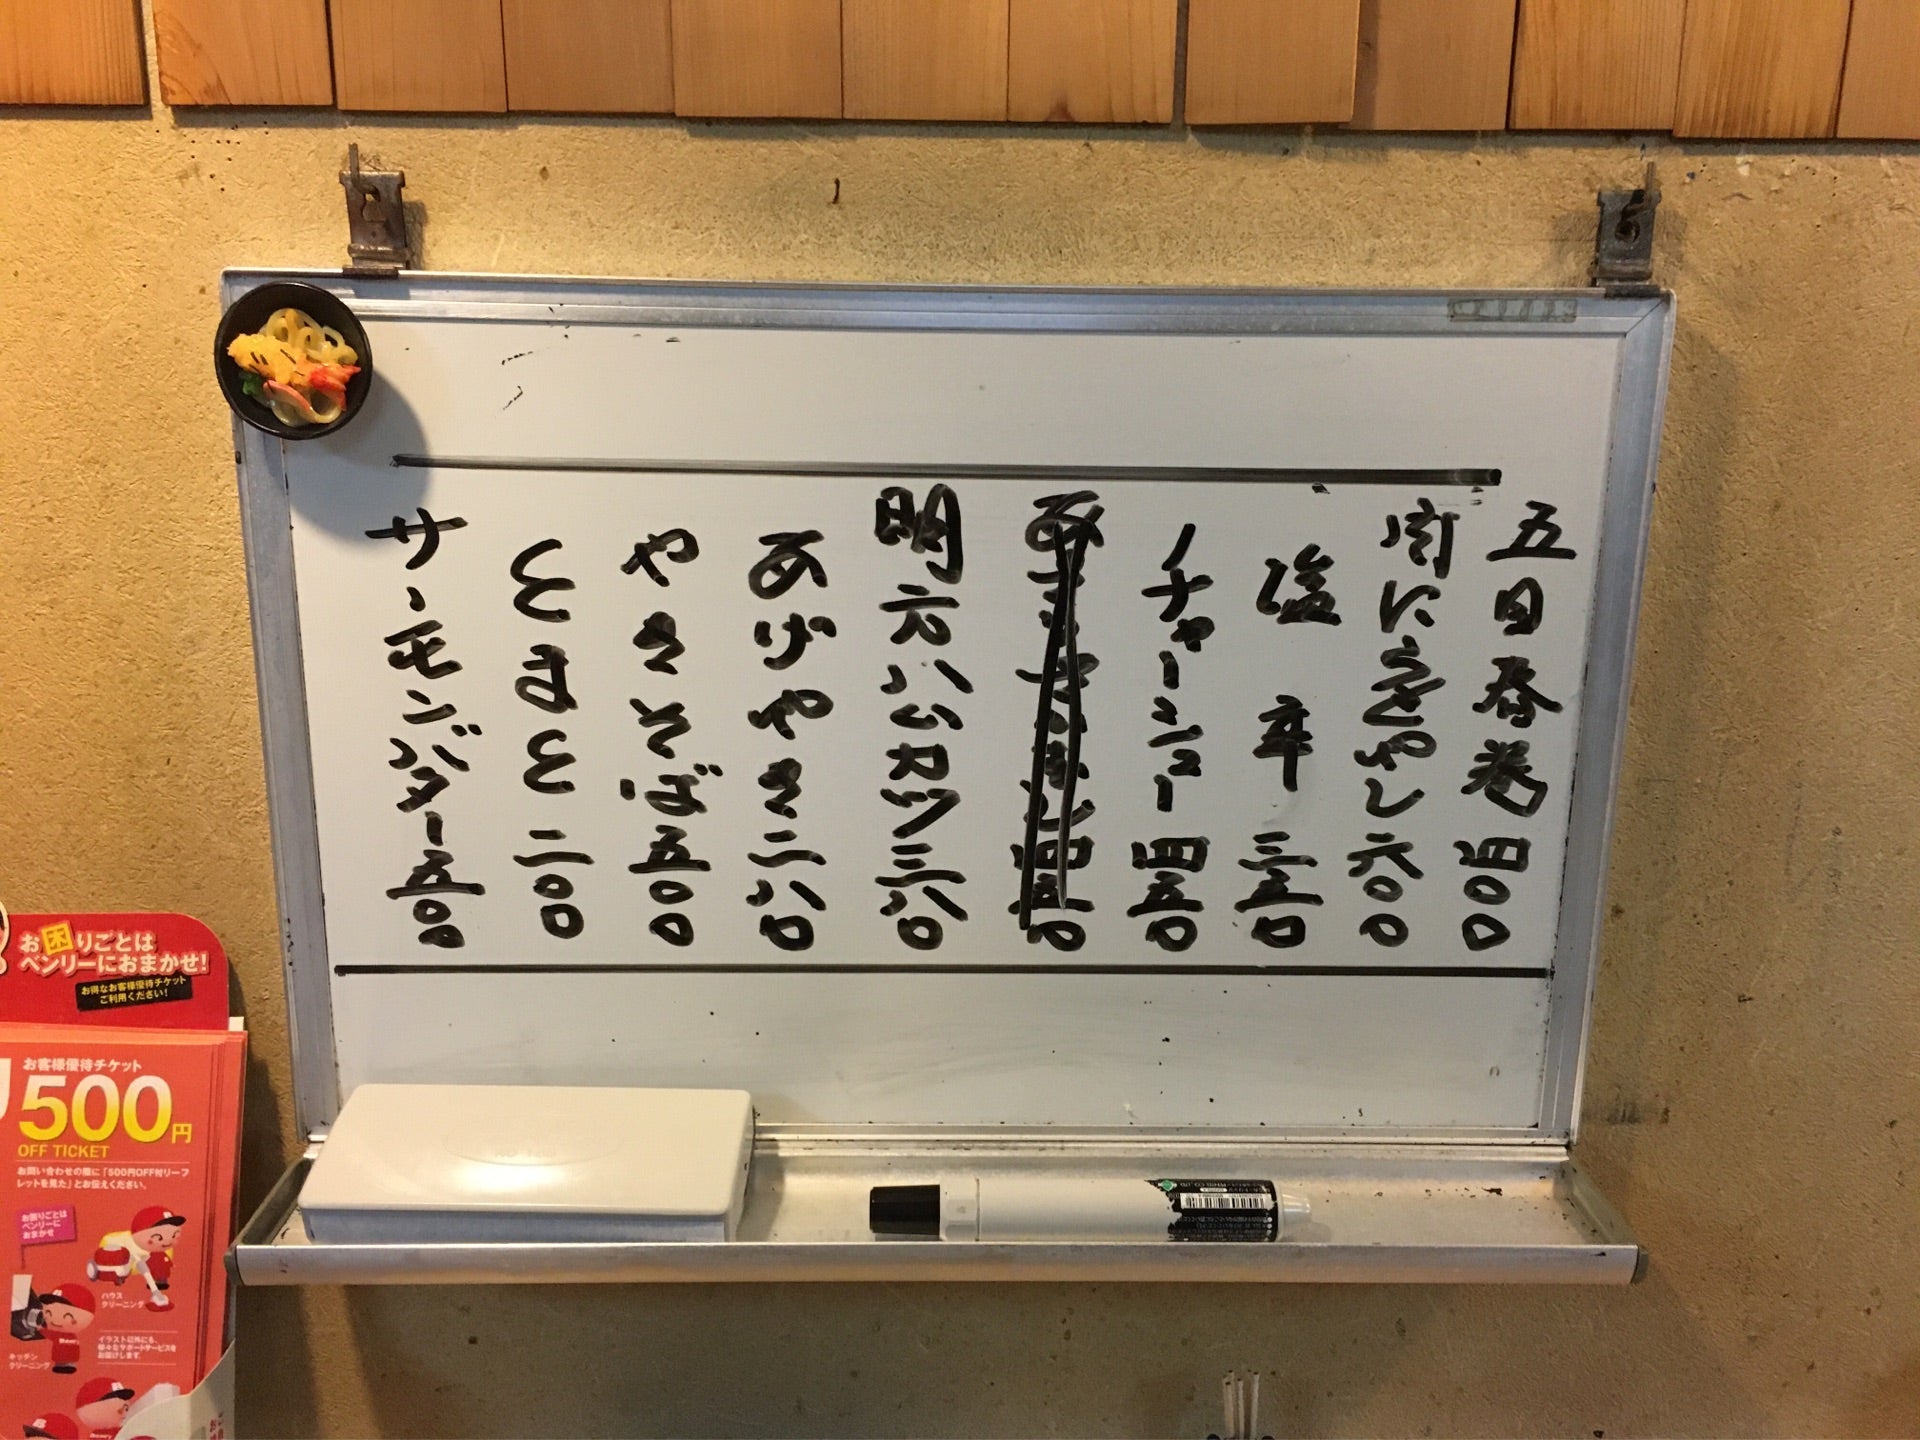 五目春巻 四〇〇
肉にらもやし 六〇〇
塩辛 三五〇
チャーシュー 四五〇
四五〇
明太ハムカツ 三八〇
あげやき 二八〇
やきそば 五〇〇
とまと 二〇〇
サーモンバター 五〇〇
お困りごとは
ベンリーにおまかせ!
お得なお客様優待チケット
ご利用ください!
お客様優待チケット
500円
OFF TICKET
お問い合わせの際に「500円OFF付リーフ
レットを見た」とお伝えください。
お困りごとは
ベンリーに
おまかせ
ハウス
クリーニング
キッチン
クリーニング
イラスト以外にも、
様々なサポートサービスを
お届けします